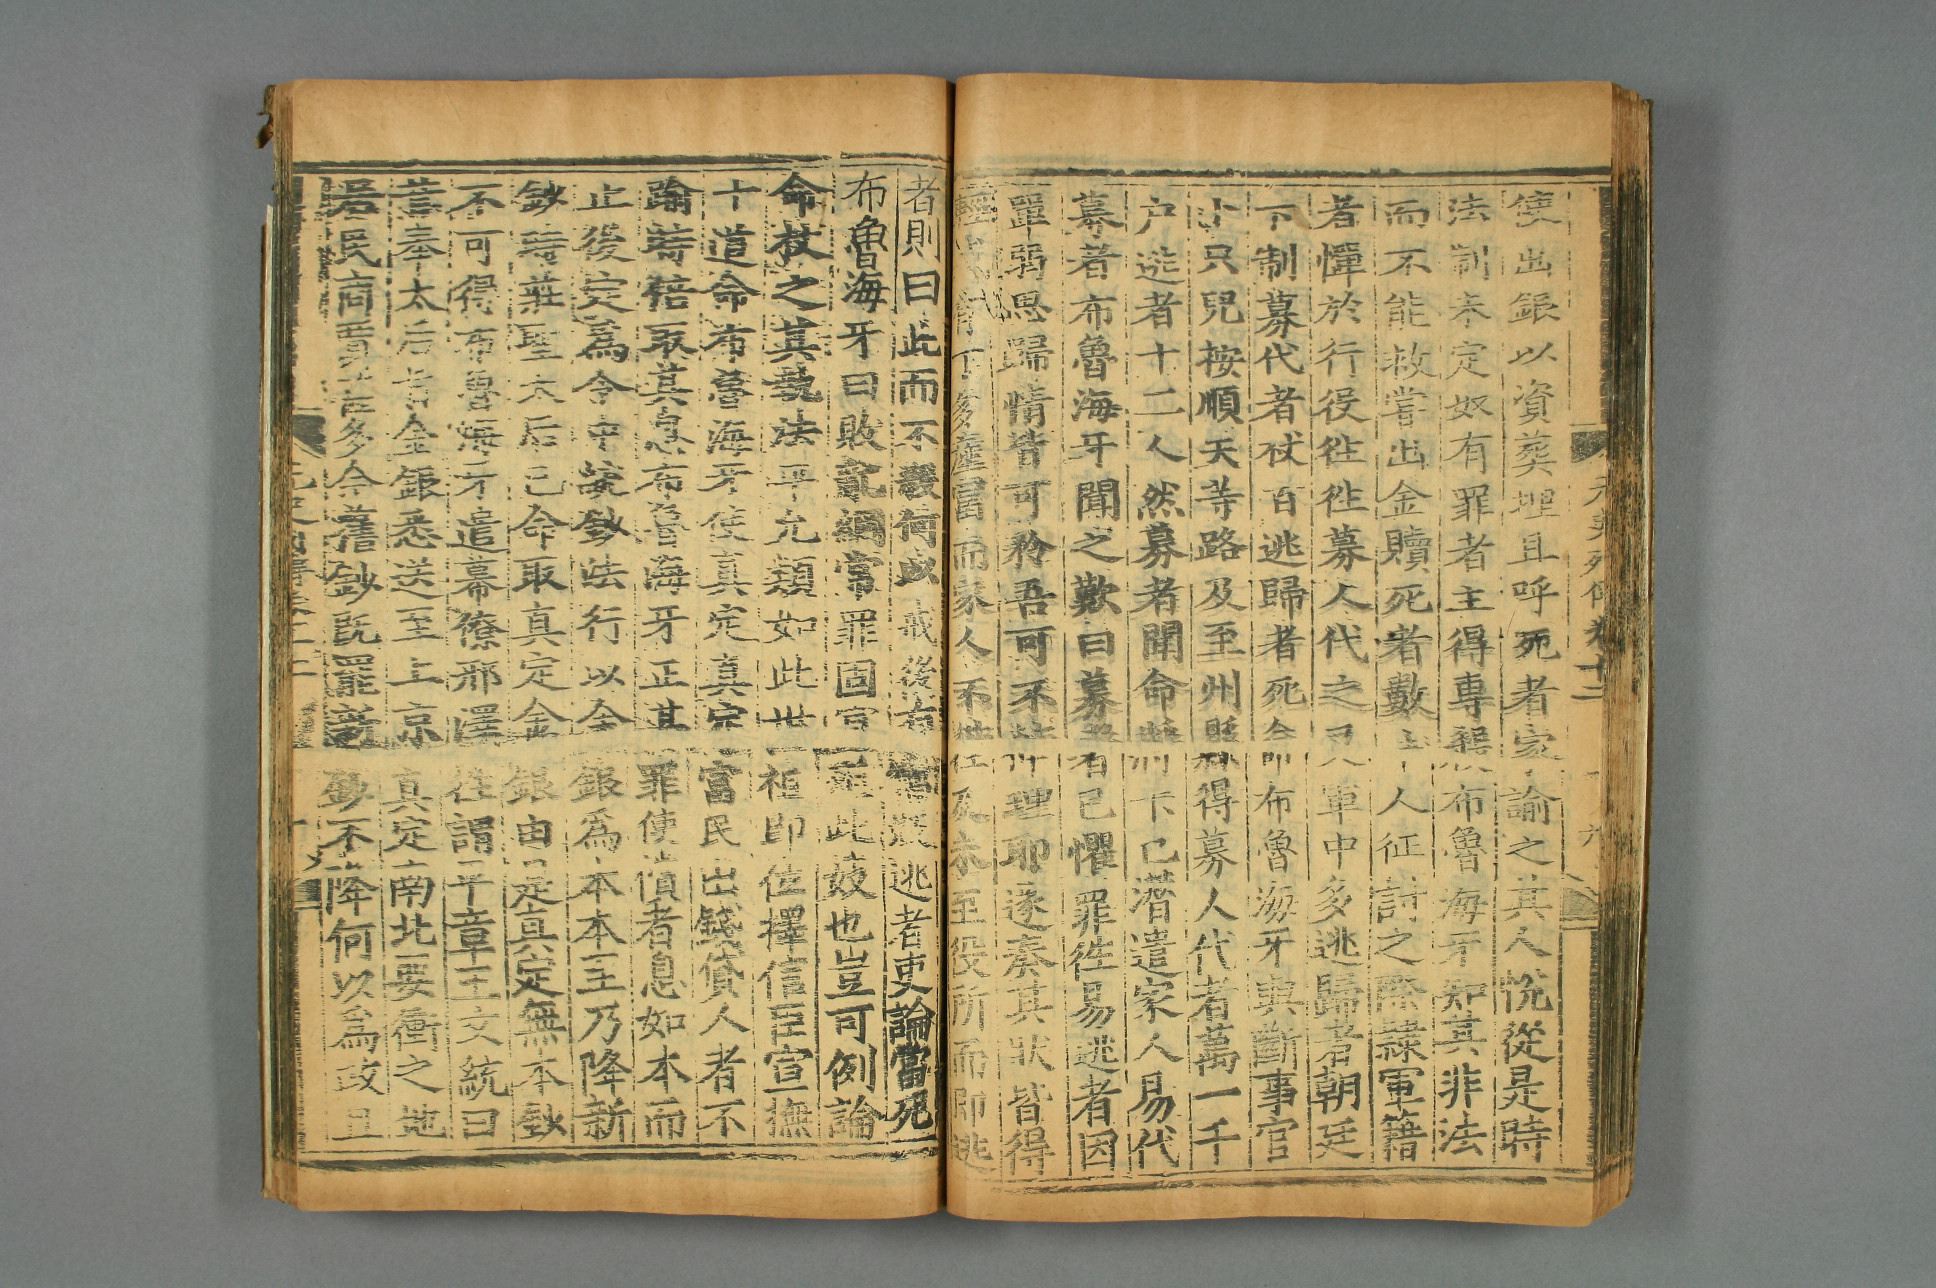 使出銀以資葬埋且呼死者家諭之其人悅從是時
法制未定奴有罪者主得專殺布魯海牙知其非法
而不能救嘗出金贖死者數十人征討之際隸軍籍
者憚於行役往往募人代之又軍中多逃歸者朝廷
下制募代者杖百逃歸者死命布魯海牙與斷事官
小只兒按順天等路及至州縣得募人代者萬一千
户逃者十二人然募者聞命將下已潛遣家人易代
募者布魯海牙聞之歎曰募者已懼罪往易逃者因
單弱思歸情皆可矜吾可不伸理耶遂奏其狀皆得
丁多產富而家人不往及未至役所而即逃
者則曰此而不殺何以戒後有逃者吏論當死
布魯海牙曰敗亂綱常罪固宜此妓也豈可例論
命杖之其執法平允類如此世祖即位擇信臣宣撫
十道命布魯海牙使真定真定富民出錢貸人者不
踰時倍取其息布魯海牙正其罪使償者息如本而
止後定為令中統鈔法行以金銀為本本至乃降新
鈔時莊聖太后已命取真定金銀由是真定無本鈔
不可得布魯海牙遣幕僚邢澤往謂平章王文統曰
昔奉太后旨金銀悉送至上京真定南北要衝之地
居民商賈甚多今舊鈔既罷新鈔不降何以為政且